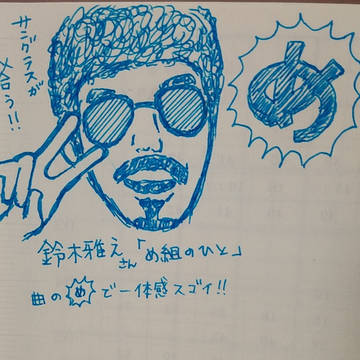 サングラスが
〆合う!!
め
鈴木雅え
さん「め組のひと」
曲の め で一体感スゴイ!!